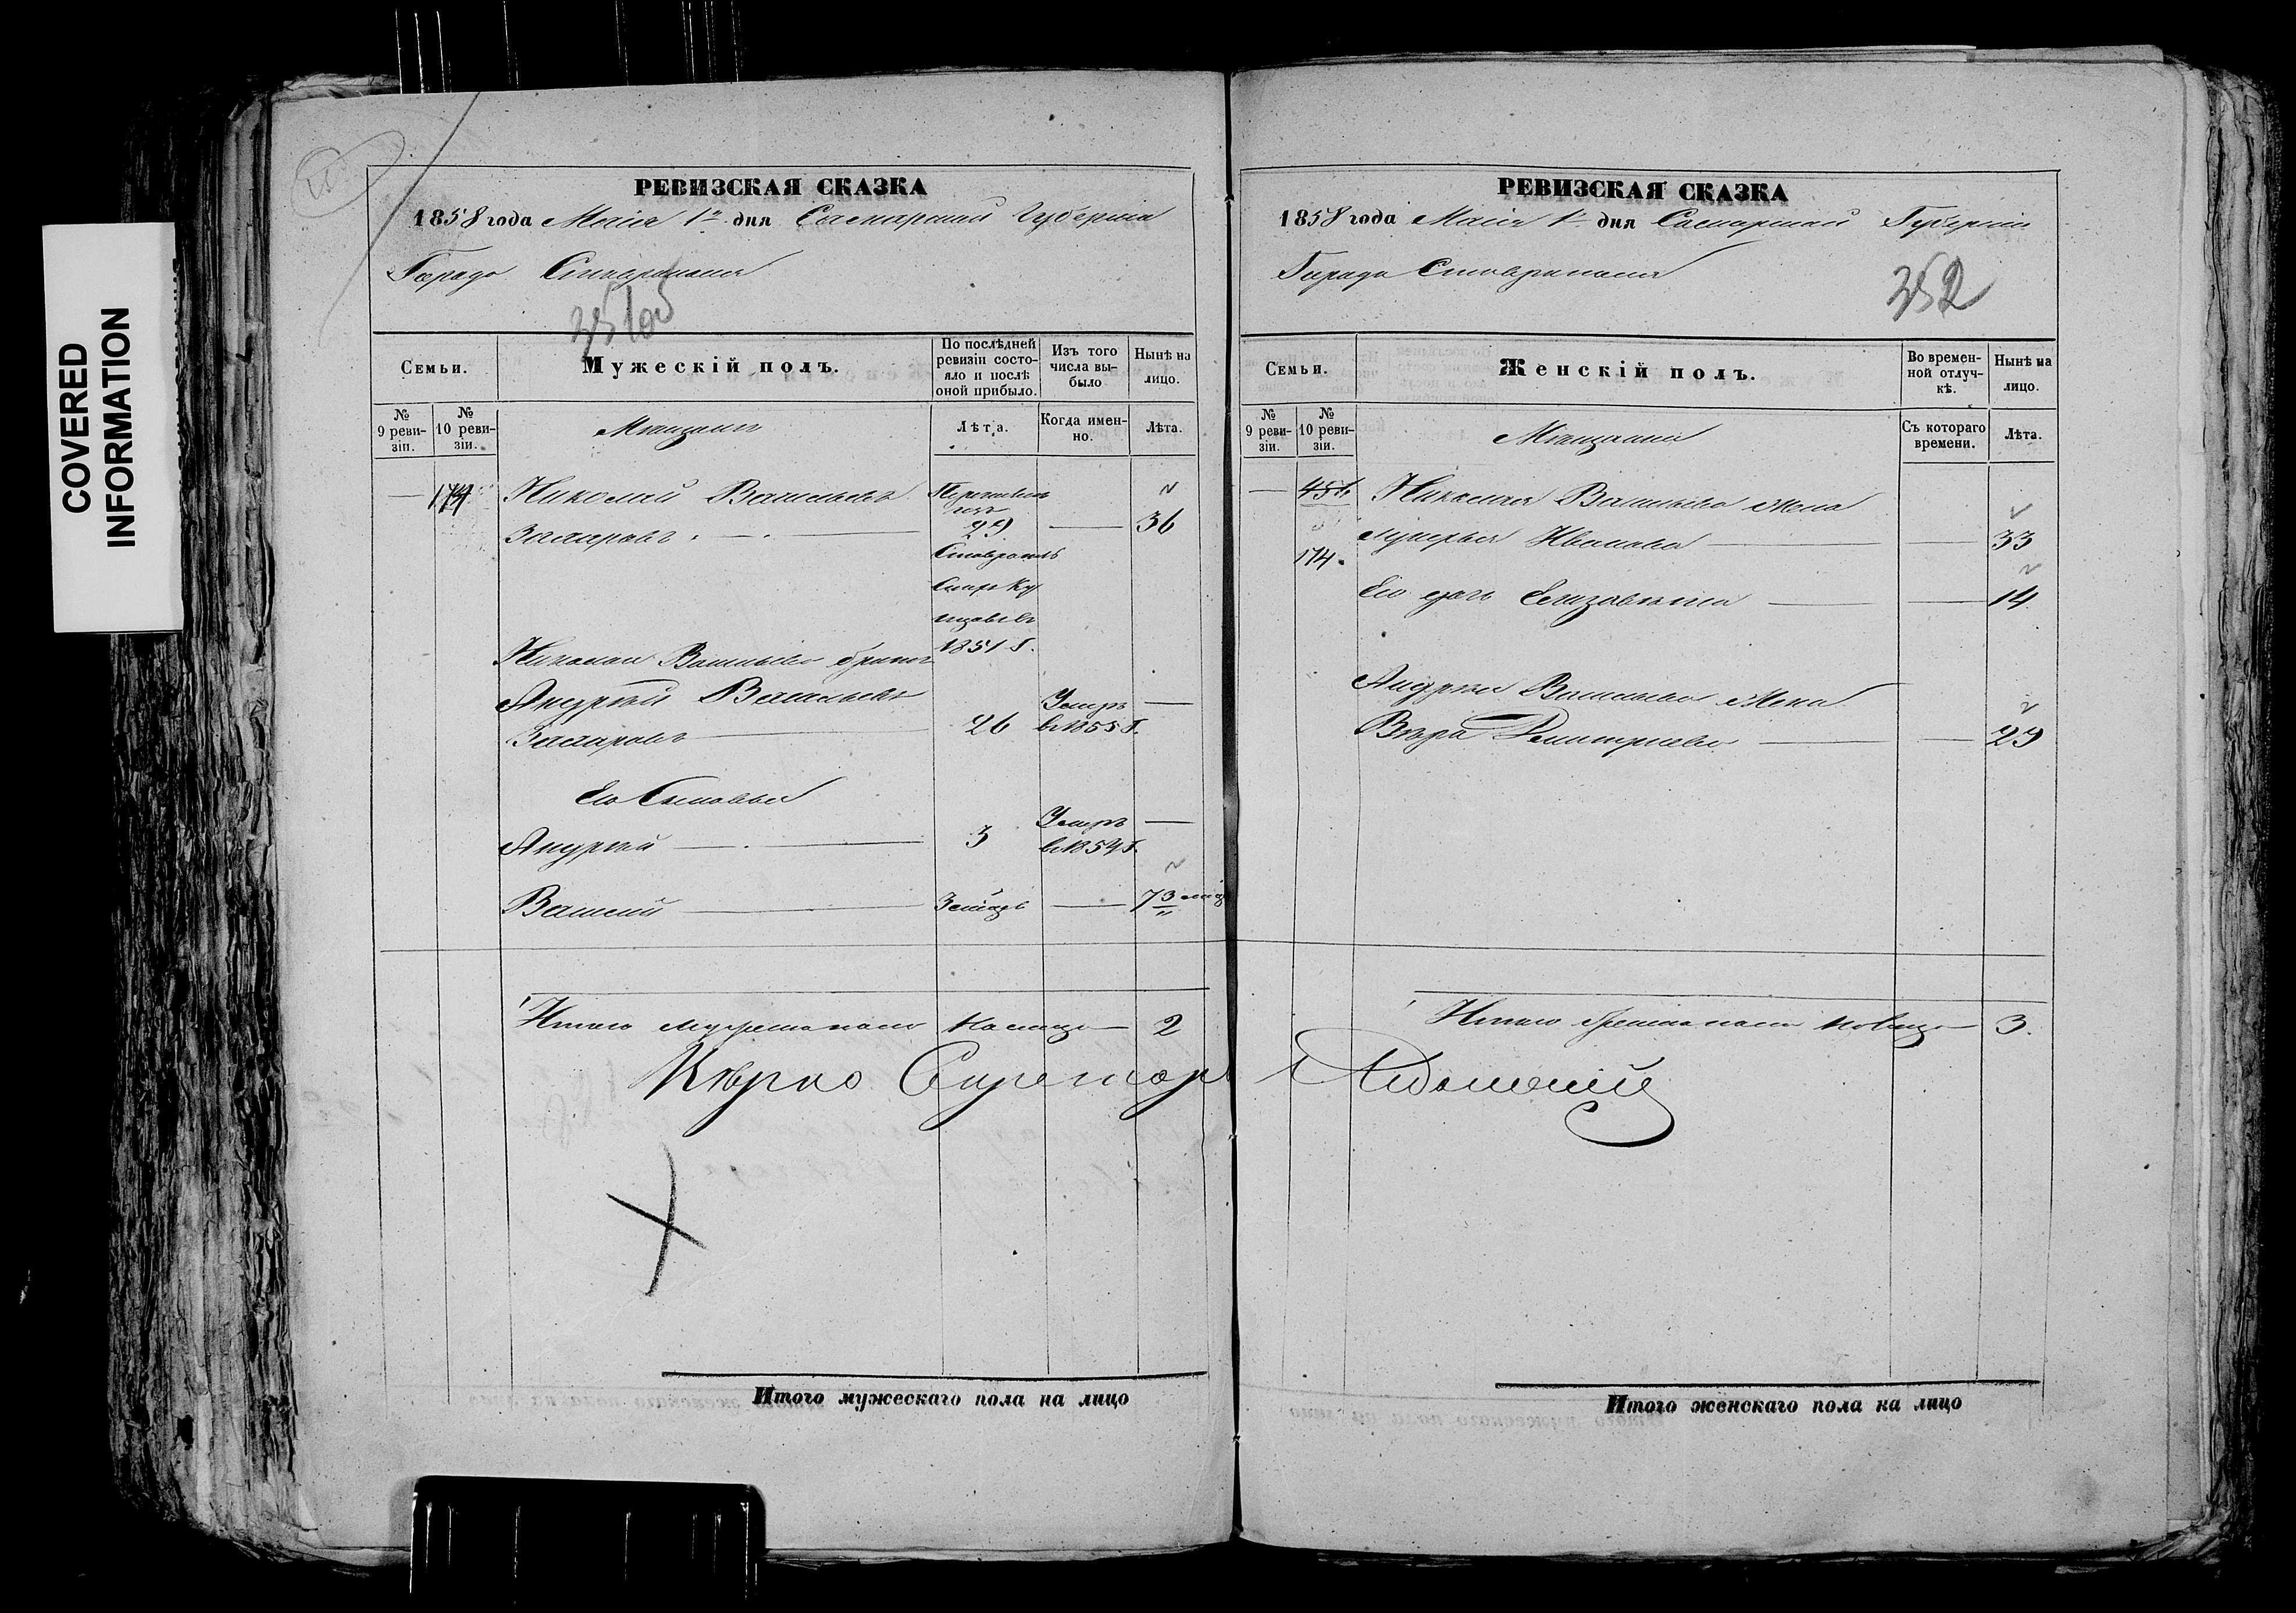 COVERED
INFORMATION
РЕВИЗСКАЯ СКАЗКА
1858 года Маія 1го дня Самарской Губерніи
Города Ставрополя
351об
Семьи.
Мужескій полъ.
По послѣдней ревизіи состояло и послѣ оной прибыло.
Изъ того числа выбыло
Нынѣ на лицо.
№ 9 ревизіи.
№ 10 ревизіи.
Мѣщане
Лѣта.
Когда именно.
Лѣта.
174
Николай Васильевъ
Захаровъ
29
36
1851 г.
Николая Васильева братъ
Андрей Васильевъ
Захаровъ
26
Умеръ
въ 1855 г.
Его Сыновья
Андрей
3
Умеръ
въ 1854 г.
Василий
Итого мужеска пола на лицо
2
Вѣрно Секретарь
Итого мужескаго пола на лицо
РЕВИЗСКАЯ СКАЗКА
1858 года Маія 1го дня Самарской Губерніи
Города Ставрополя
352
Семьи.
Женскій полъ.
Во временной отлучкѣ.
Нынѣ на лицо.
№ 9 ревизіи.
№ 10 ревизіи.
Мѣщане
Съ котораго времени.
Лѣта.
174.
Николая Васильева жена
Лукерья Иванова
33
Его дочь Елизавета
14
Андрея Васильева жена
Вѣра Дмитриева
29
Итого женска пола на лицо
3.
Итого женскаго пола на лицо